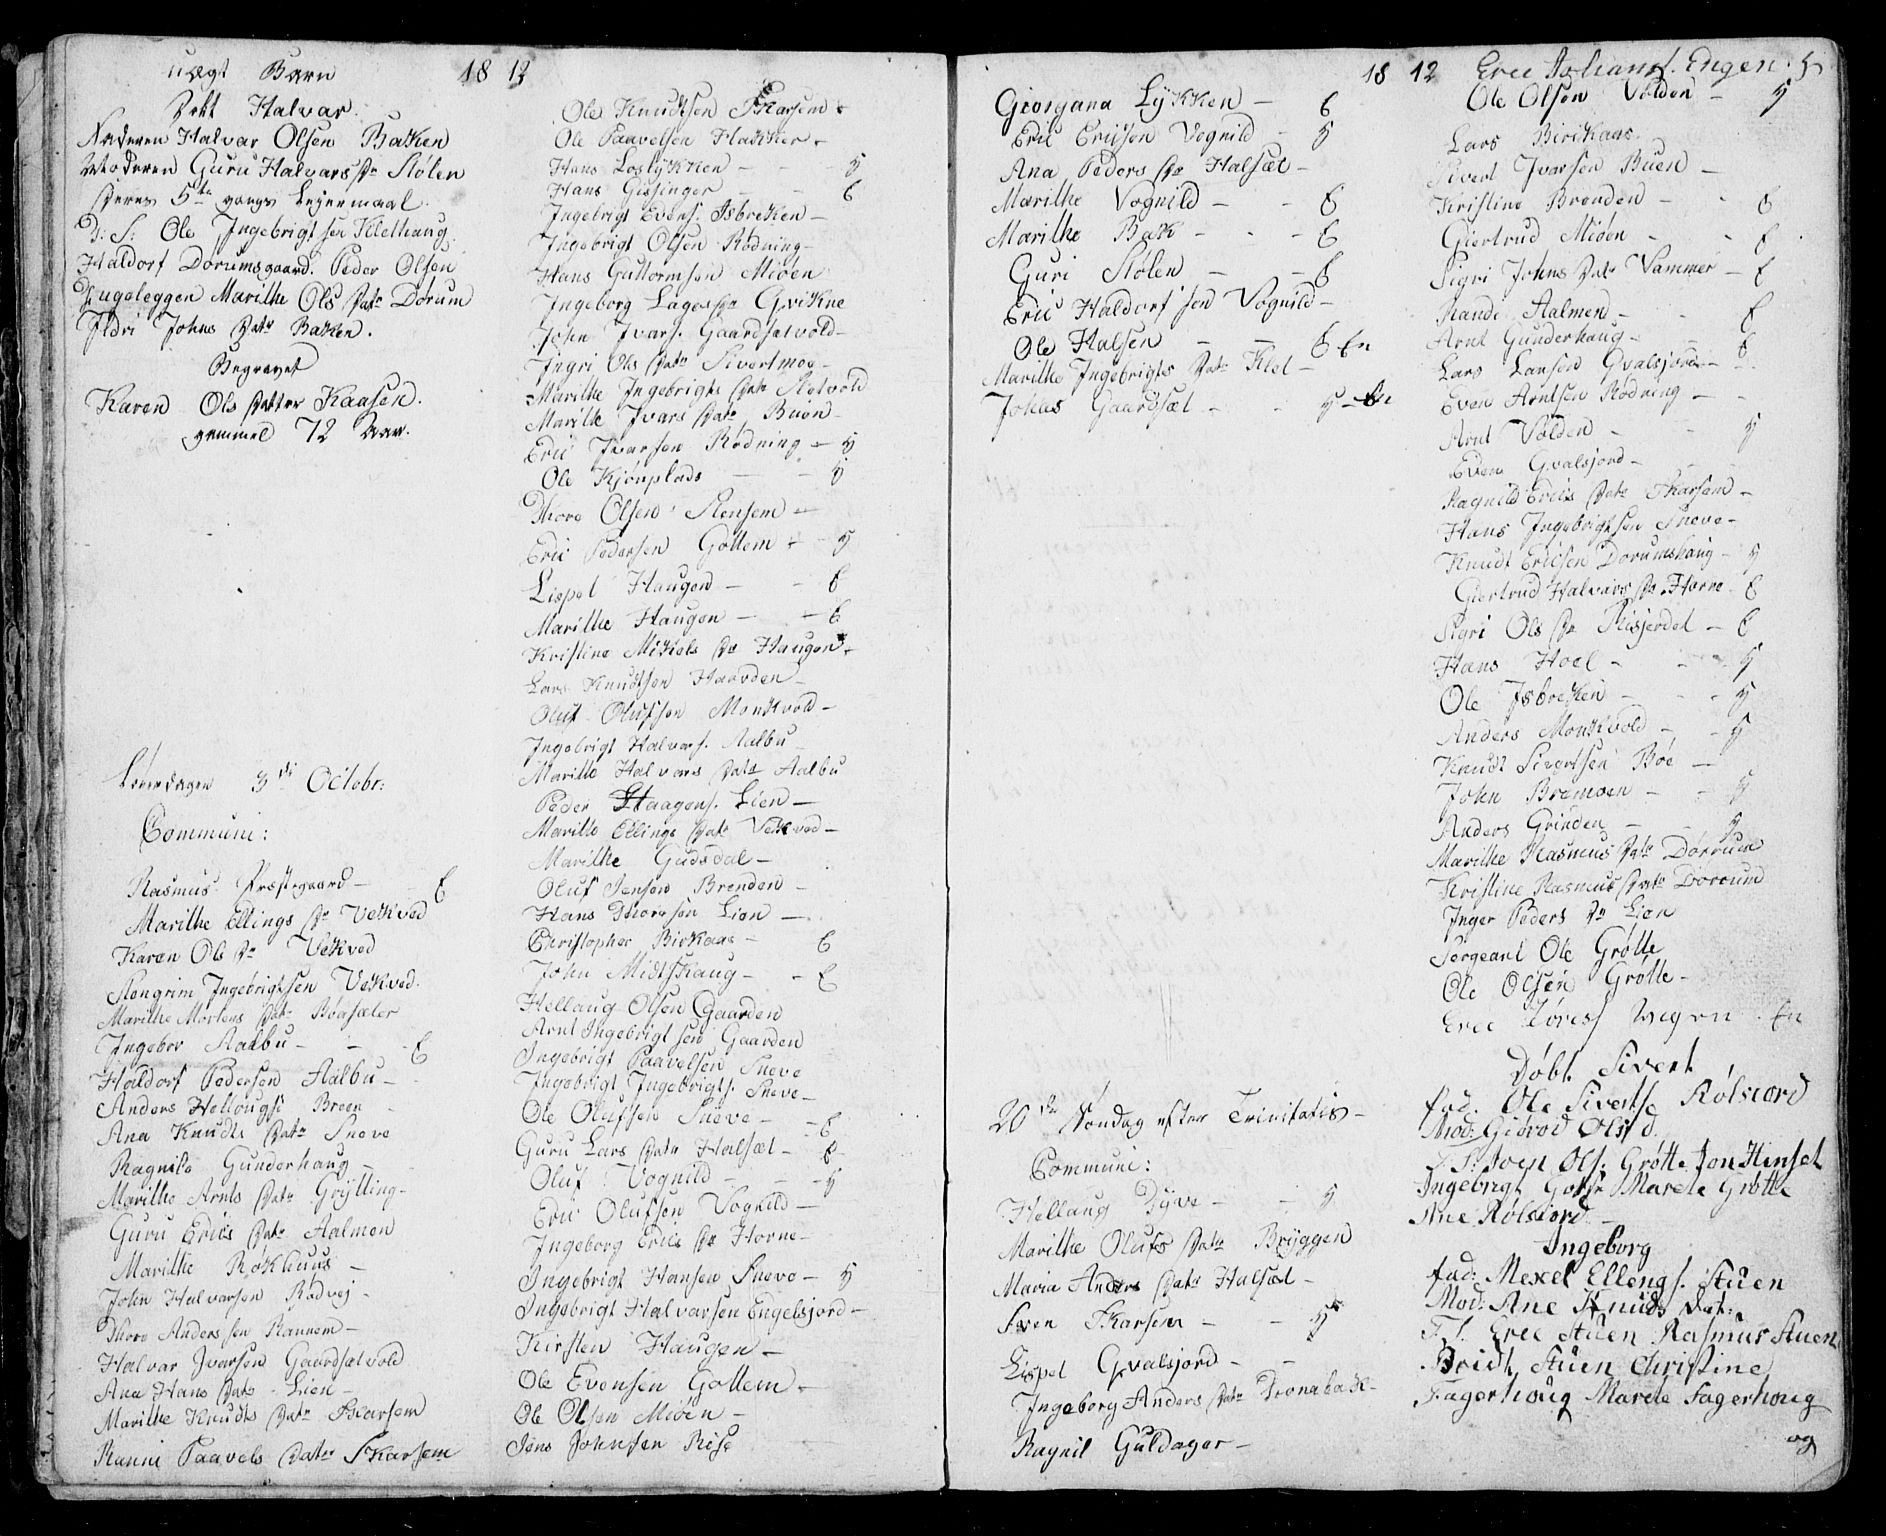 uægt Barn 18 12
Døbt Halvar.
Faderen Halvar Olsen Bakken
Moderen Guru Halvars Dr Stølen
deres 5te gangs Lejermaal.
F: S: Ole Ingebrigtsen Klethaug.
Haldorf Dorumsgaard. Peder Olsen
Engeleggen Marithe Ols Datr Dorum
Ildri Johns Datr Bakken.
Begravet
Karen Ols Datter Kaasen.
gammel 72 Aar.
Løverdagen 3die Octobr:
Communi:
Rasmus Præstegaard - E
Marithe Ellings Dr Vekved
Karen Ols Dr Vekved
Stengrim Ingebrigtsen Vekved.
Marithe Mortens Datr Bøasæter
Ingebor Aalbu - - E
Haldorf Pedersen Aalbu -
Anders Hellougs: Breen -
Ana Knudts Datr Sneve
Ragnild Gunderhaug -
Marithe Arnts Datr Grytting -
Guru Erics Datr Aalmen
Marithe Røkhuus -
John Halvarsen Rødvej -
Thore Anderssen Rannem -
Halvar Ivarsen Gaardsætvold
Ana Hans Datr Lien -
Marithe Knudts Datr Skarsem
Ranni Paavels Datr Skarsem
Ole Knudtsen Skarsem -
Ole Paavelsen Hakker -
Hans Loslykken - - 5
Hans Gissinger - - E
Ingebrigt Evens. Isbrekken -
Ingebrigt Olsen Rødning -
Hans Guttormsen Miøen
Ingeborg Lages Dr Qvikne
John Ivars. Gaardsætvold -
Ingri Ols Datr Sivertmoe -
Marithe Ingebrigts Datr Sletvold
Marithe Ivars Datr Buen -
Eric Ivarsen Rødning - 5
Ole Kjønplads - - 5
Thore Olsen Stensem -
Eric Pedersen Gottem - - 5
Lispet Haugen - - E
Marithe Haugen - - E
Kristine Mikels Dr Haugen -
Lars Knudtsen Haarden -
Oluf Olufsen Monkvold -
Ingebrigt Halvars. Aalbu
Marithe Halvars Datr Aalbu
Peder Haagens. Lien -
Marithe Ellings Datr Vekved -
Marithe Gudsdal -
Oluf Jensen Brenden -
Hans Thoresen Lien -
Christopher Birkaas - E
John Midtskaug - - E
Hellaug Olsen Gaarden
Arnt Ingebrigtsen Gaarden
Ingebrigt Paavelsen Sneve
Ingebrigt Ingebrigts. Sneve -
Ole Olufsen Sneve - - E
Guru Lars Datr Halsæt - E
Oluf Vognild - - 5
Eric Olufsen Vognild -
Ingeborg Erics Dr Horne -
Ingebrigt Hansen Sneve - 5
Ingebrigt Halvarsen Engelsjord -
Kirsten Haugen -
Ole Evensen Gottem -
Ole Olsen Miøen -
Jens Johnsen Rise
18 12
Giorgana Lykken - E
Eric Ericsen Vognild - 5
Ana Peders Dr Halsæt -
Marithe Vognild - - E
Marithe Bak - - - E
Guri Stølen - - E
Eric Haldorfsen Vognild -
Ole Halsen - - E En
Marithe Ingebrigts Datr Klet -
Johas Gaardsæt - - 5 - En
20de Søndag efter Trinitatis -
Communi:
Hellaug Dyve - - 5
Marithe Olufs Datr Bryggen
Maria Anders Datr Halsæt -
Sven Skarsem - - 5
Lispet Qvalsjord - -
Ingeborg Anders Datr Dronabak -
Ragnil Guldager -
Eric Johans. Engen. 5
Ole Olsen Volden - 5
Lars Birikaas
Sivert Ivarsen Buen -
Kristine Brenden - - E
Giertrud Miøen - - E
Sigri Johns Datr Vammer - E
Rande Aalmen - - E
Arnt Gunderhaug - - E
Lars Larsen Qvalsjord - -
Even Arntsen Rødning - -
Arnt Volden - - 5
Even Qvalsjord -
Ragnild Erics Datr Skarsem -
Hans Ingebrigtsen Sneve -
Knudt Ericsen Dorumshaug - 5
Giertrud Halvars Dr Horne - E
Sigri Ols Dr Risjerdet - E
Hans Hoel - - 5
Ole Isbrekken - - 5
Anders Monkvold - - 5
Knudt Sivertsen Bøe -
John Bremoen - - 5
Anders Grinden - 5
Marithe Rasmus Datr Dorrum
Kristine Rasmus Datr Dorrum
Inger Peders Dr Lien
Sergeant Ole Grøtte
Ole Olsen Grøtte -
Eric Tores. Wegen. En
Døbt Sivert
fad. Ole Sivertse Rølsiord
Mod: Giørod Olsd.
F. S: Joen Ols. Grøtte Jon Hinset
Ingebrigt Marete Grøtte
Ane Rølsiord -
Ingeborg
fad: Mexel Ellengs. Stuen
Mod: Ane Knuds Dat:
F. S. Eric Stuen Rasmus Stuen
Bridt Stuen Christine
Fagerhoug Marete Fagerhoug
og